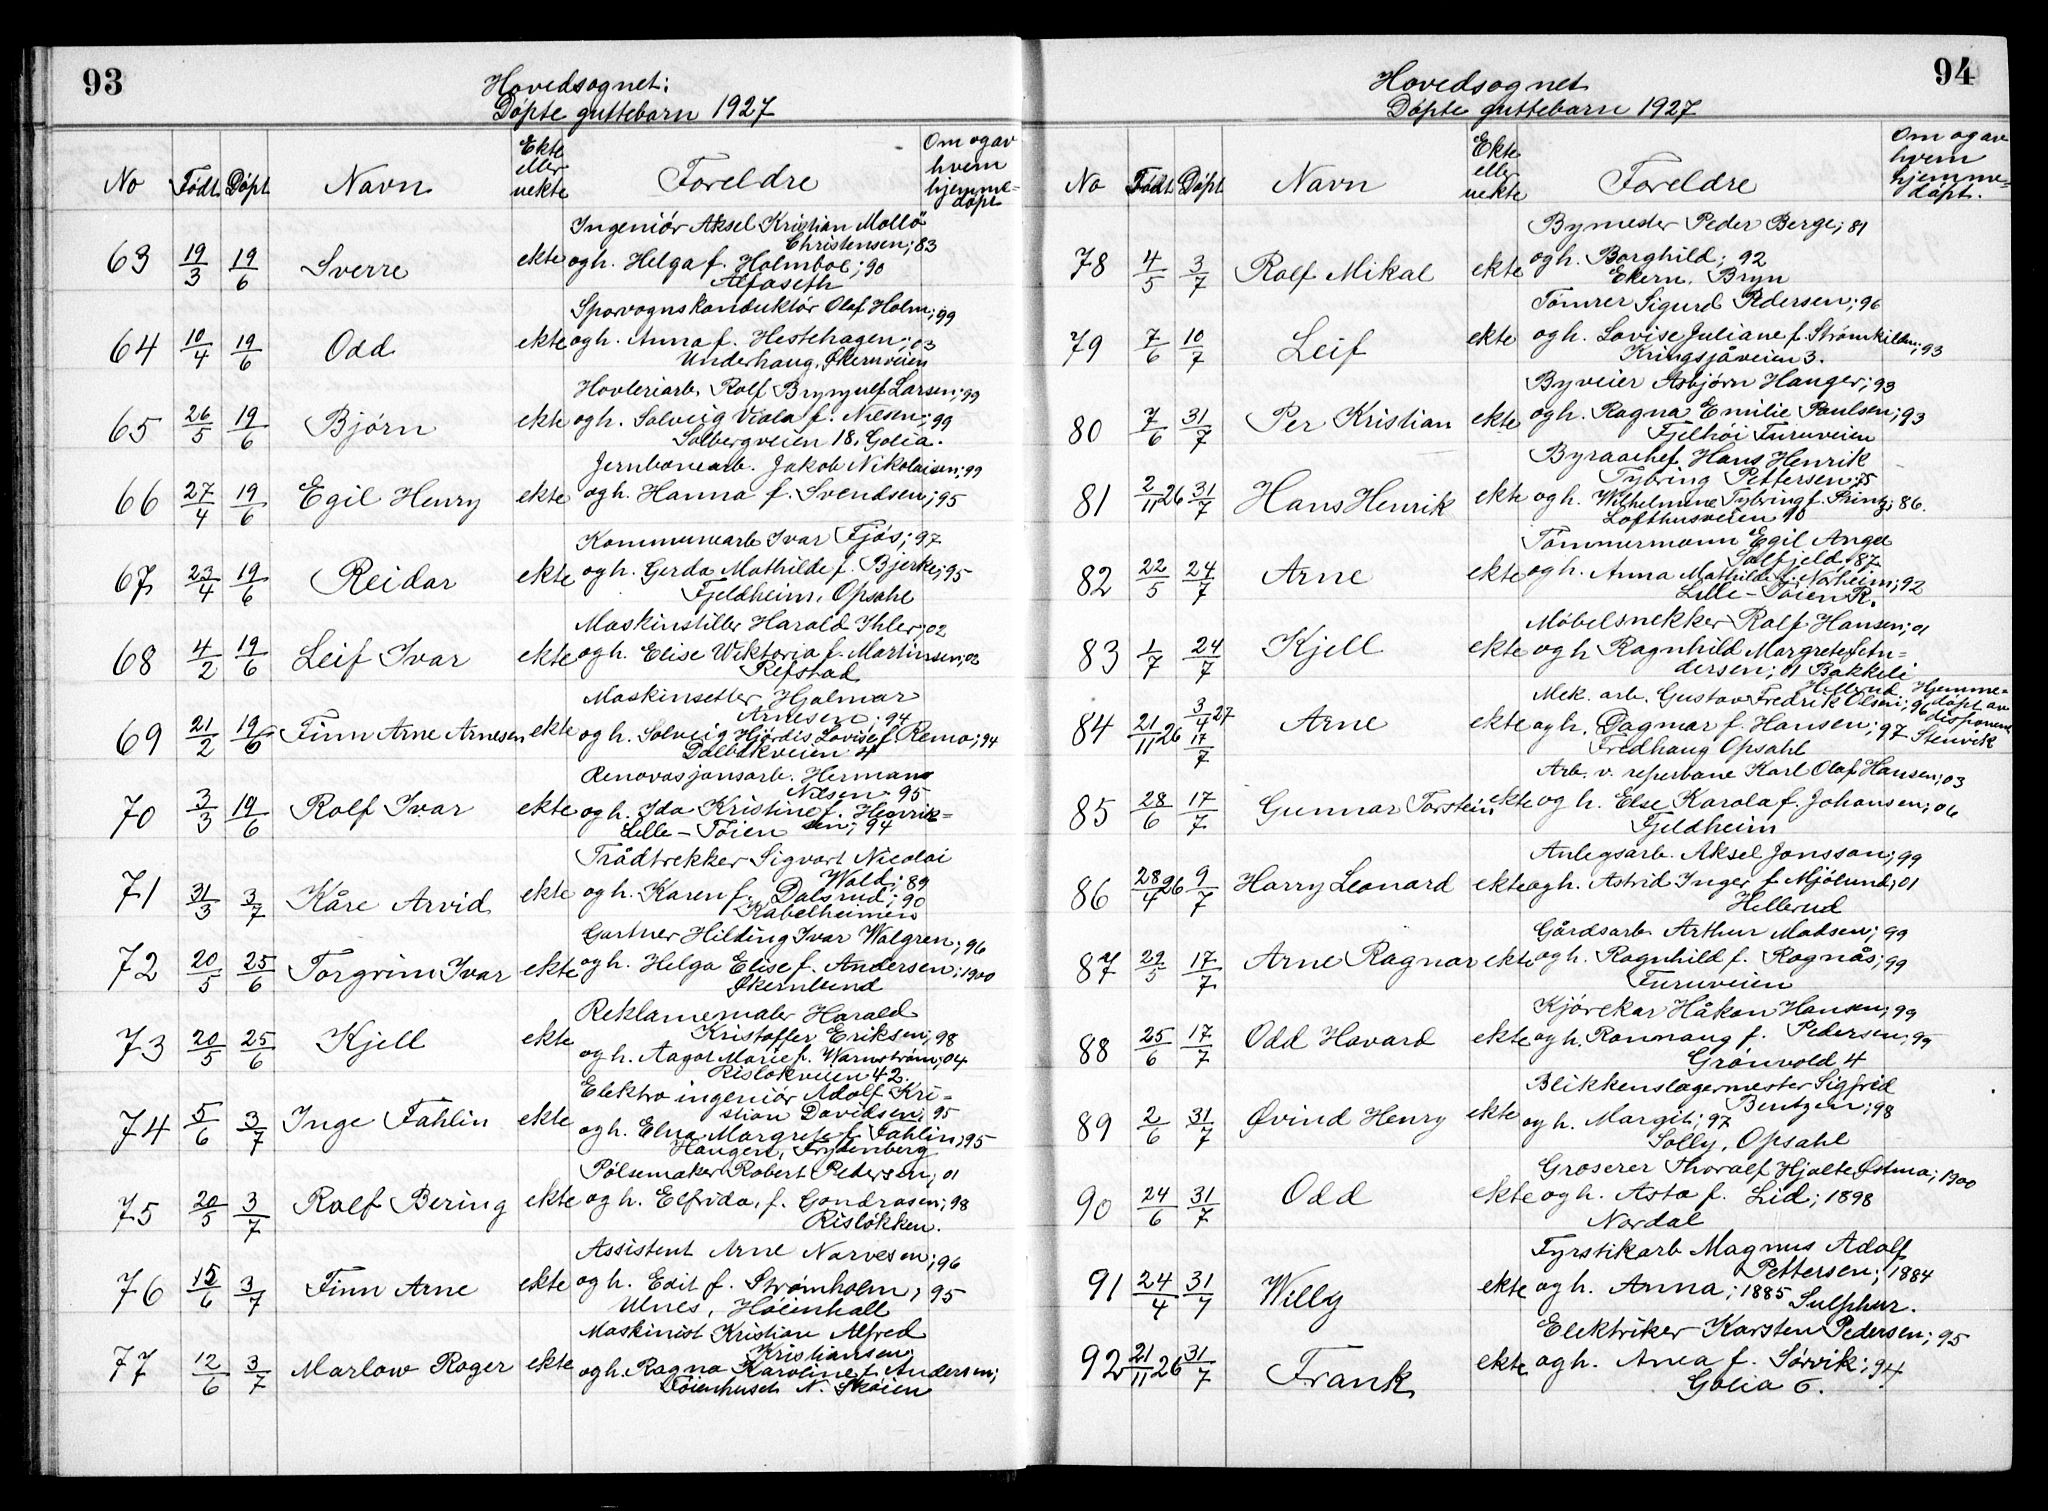 93
Hovedsognet:
Døpte guttebarn 1927
No Født Døpt Navn Ekte eller uekte Foreldre Om og av hvem hjemme= døpt
Ingeniör Aksel Kristian
Christensen; 83
63 19/3 19/6 Sverre ekte og h. Helga f. Holmboe; 90
Alfaseth
Sporvognskonduktör Olaf Holm; 99
64 10/4 19/6 Odd ekte og h. Anna f. Hestehagen; 03
Underhaug, Økernveien
Hovleriarb. Rolf Brynjulf Larsen; 99
65 26/5 19/6 Bjørn ekte og h. Solveig Viola f. Nilsen; 99
Solbergveien 18, Golia.
Jernbanearb. Jakob Nikolaisen; 99
66 27/4 19/6 Egil Henry ekte og h. Hanna f. Svendsen; 95
Kommunearb Ivar Fjøs; 97
67 23/4 19/6 Reidar ekte og h. Gerda Mathilde f. Bjerke; 95
Fjeldheim, Opsahl
Maskinstiller Harald Ihler; 02
68 4/2 19/6 Leif Ivar ekte og h. Elise Wiktoria f. Martinsen; 02
Refstad
Maskinsetter Hjalmar
Arnesen; 94
69 21/2 19/6 Finn Arne Arnesen ekte og h. Solveig Hjördis Lovise f. Remo; 94
Dalbakveien 4
Renovasjonsarb. Herman
Nilsen 95
70 3/3 19/6 Rolf Ivar ekte og h. Ida Kristine f. Henrik=
Lille-Töien sen; 94
Trådtrekker Sigvart Nicolai
Wold; 89
71 31/3 3/7 Kåre Arvid ekte og h. Karen f. Dalsrud; 90
Kabelheimen
Gartner Hilding Ivar Walgren; 96
72 20/5 25/6 Torgrim Ivar ekte og h. Helga Elise f. Andersen; 1900
Økernlund
Reklamemaler Harald
Kristoffer Eriksen; 98
73 20/5 25/6 Kjell ekte og h. Aagot Marie f. Warnström; 04
Rislökveien 42.
Elektro ingeniör Adolf Kri-
stian Davidsen; 95
74 5/6 3/7 Inge Fahlin ekte og h. Elna Margrete f. Fahlin; 95
Haugen, Frydenberg
Pölsemaker Robert Pedersen; 01
75 20/5 3/7 Rolf Bering ekte og h. Elfrida, f. Gondrosen; 98
Rislökken.
Assistent Arne Narvesen; 96
76 15/6 3/7 Finn Arne ekte og h. Edit f. Strømholm; 95
Ulnes, Høienhall
Maskinist Kristian Alfred
Kristiansen;
77 12/6 3/7 Marlow Roger ekte og h. Ragna Karoline f. Andersen;
Töienhuset N. Skøien
94
Hovedsognet
Døpte guttebarn 1927
No Født Døpt Navn Ekte eller uekte Foreldre Om og av hvem hjemme= døpt.
Bymester Peder Berge; 81
78 4/5 3/7 Rolf Mikal ekte og h. Borghild; 92
Ekern, Bryn
Tömrer Sigurd Pedersen; 96
79 7/6 10/7 Leif ekte og h. Lovise Juliane f. Strömkilden; 93
Kringsjåveien 3.
Byveier Asbjørn Hauger; 93
80 7/6 31/7 Per Kristian ekte og h. Ragna Emilie Paulsen; 93
Fjelhöi Furuveien
Byraachef Hans Henrik
Tybring Pettersen; 75
81 2/11 26 31/7 Hans Henrik ekte og h. Wilhelmine Tybring f. Printz; 86.
Lofthusveien 10
Tömmermann Egil Angel
Solfjeld 87
82 22/5 24/7 Arne ekte og h. Anna Mathilde f. Norheim; 92
Lille-Töien R.
Möbelsnekker Rolf Hansen; 01
83 1/7 24/7 Kjell ekte og h Ragnhild Margrete f. An=
dersen; 01 Bakkeli
Hellerud
Mek. arb. Gustav Fredrik Olsen; 96 Hjemme= döpt av disponent Stenvik
84 21/11 26 3/4 27 17/7 Arne ekte og h. Dagmar f. Hansen; 97
Fredhaug Opsahl
Arb. v. reperbane Karl Olaf Hansen; 03
85 28/6 17/7 Gunnar Torstein ekte og h. Else Karola f. Johansen; 06
Fjeldheim
Anlegsarb. Aksel Jonsson; 99
86 28/4 26 9/7 Harry Leonard ekte og h. Astrid Inger f. Mjölund; 01
Hellerud
Gårdsarb. Arthur Madsen; 99
87 29/5 17/7 Arne Ragnar ekte og h. Ragnhild f. Rognås; 99
Furuveien
Kjörekar Håkon Hansen; 99
88 25/6 17/7 Odd Havard ekte og h. Ronnaug f. Pedersen; 99
Grönvold 4
Blikkenslagermester Sigfrid
Bentzen; 98
89 2/6 31/7 Øvind Henry ekte og h. Margit; 97
Solly, Opsahl
Groserer Thoralf Hjalte Østmo; 1900
90 24/6 31/7 Odd ekte og h. Asta f. Lid; 1898
Nordal
Fyrstikarb Magnus Adolf
Pettersen; 1884
91 24/4 31/7 Willy ekte og h. Anna; 1885
Sulphur.
Elektriker Karsten Pedersen; 95
92 21/11 26 31/7 Frank ekte og h. Anea f. Sørvik; 94
Golia 6.